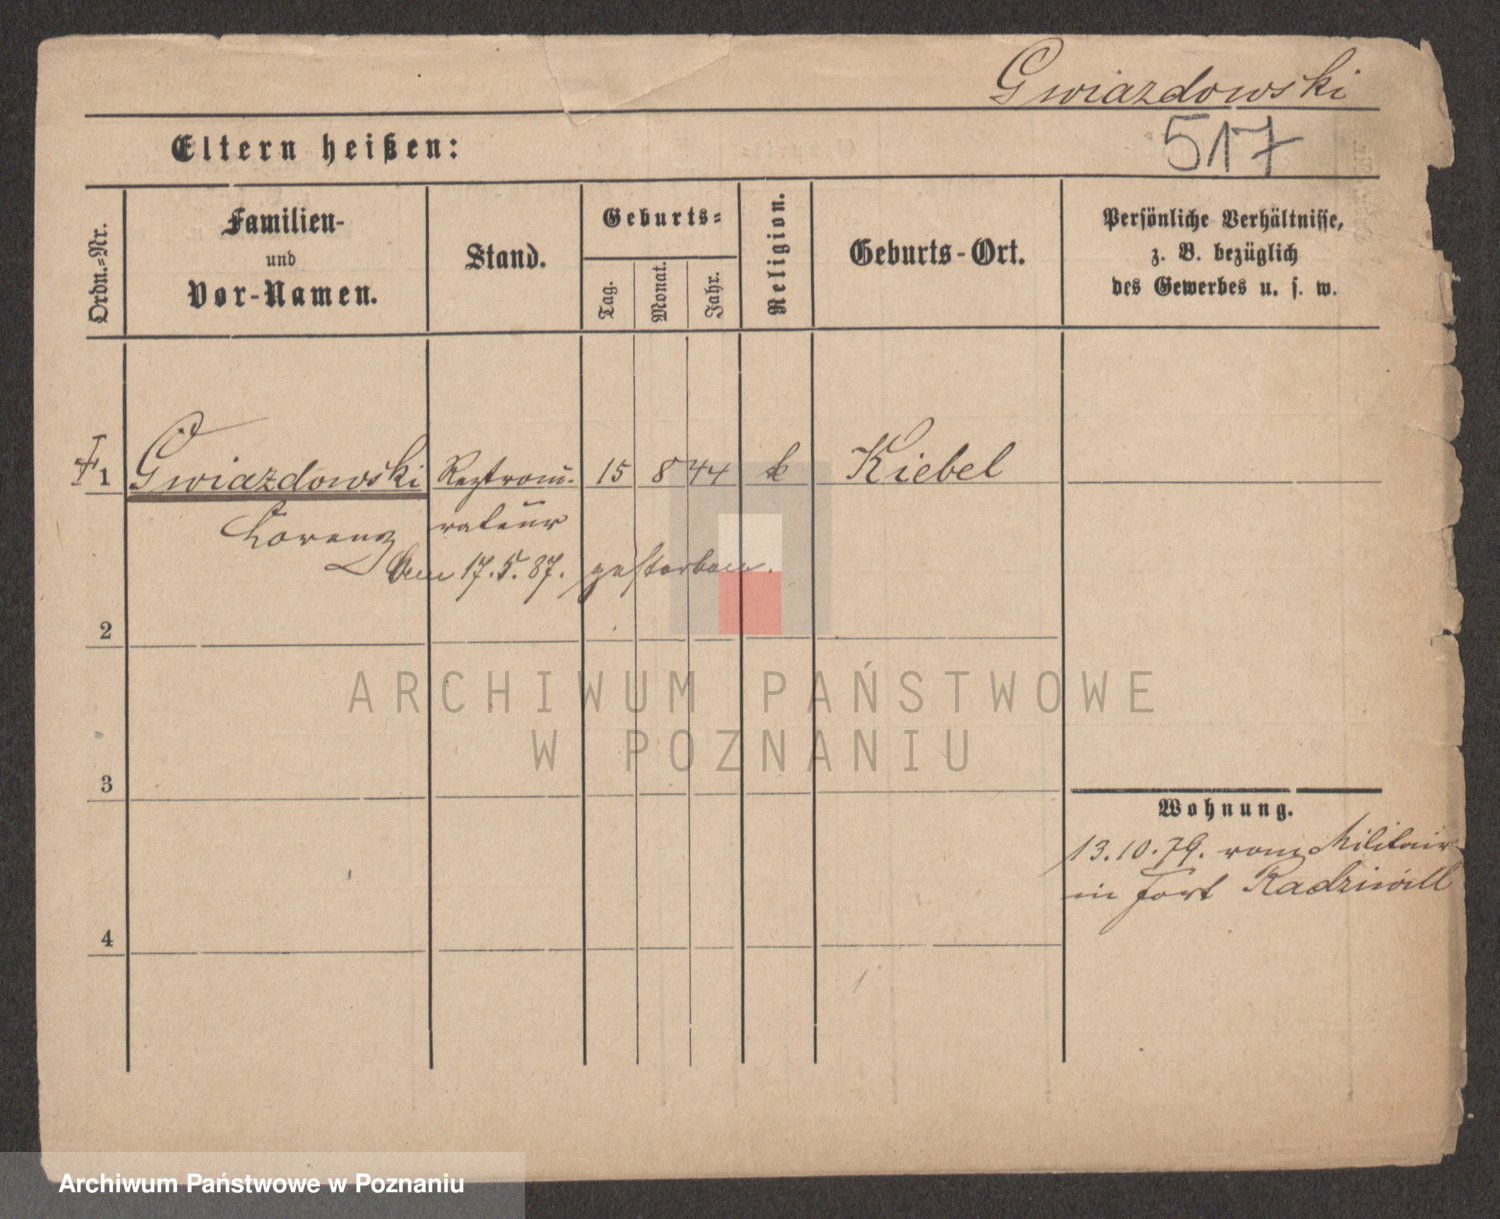 Gwiazdowski
517
Eltern heißen:
Ordn.-Nr.
Familien-
und
Vor-Namen.
Stand.
Geburts-
Tag.
Monat.
Jahr.
Religion.
Geburts-Ort.
Persönliche Verhältnisse,
z. B. bezüglich
des Gewerbes u. s. w.
1 Gwiazdowski 15 8 44 k Kiebel
Lorenz rateur
am 17.5.87. gestorben.
2
3
4
Wohnung.
13.10.79. vom Militair
in Fort Radziwill
ARCHIWUM PAŃSTWOWE
W POZNANIU
Archiwum Państwowe w Poznaniu